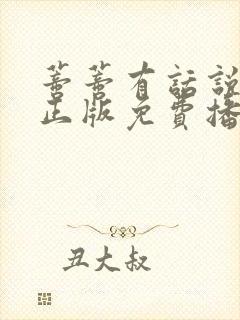 蔷蔷有話說
正版免費播
丑大叔